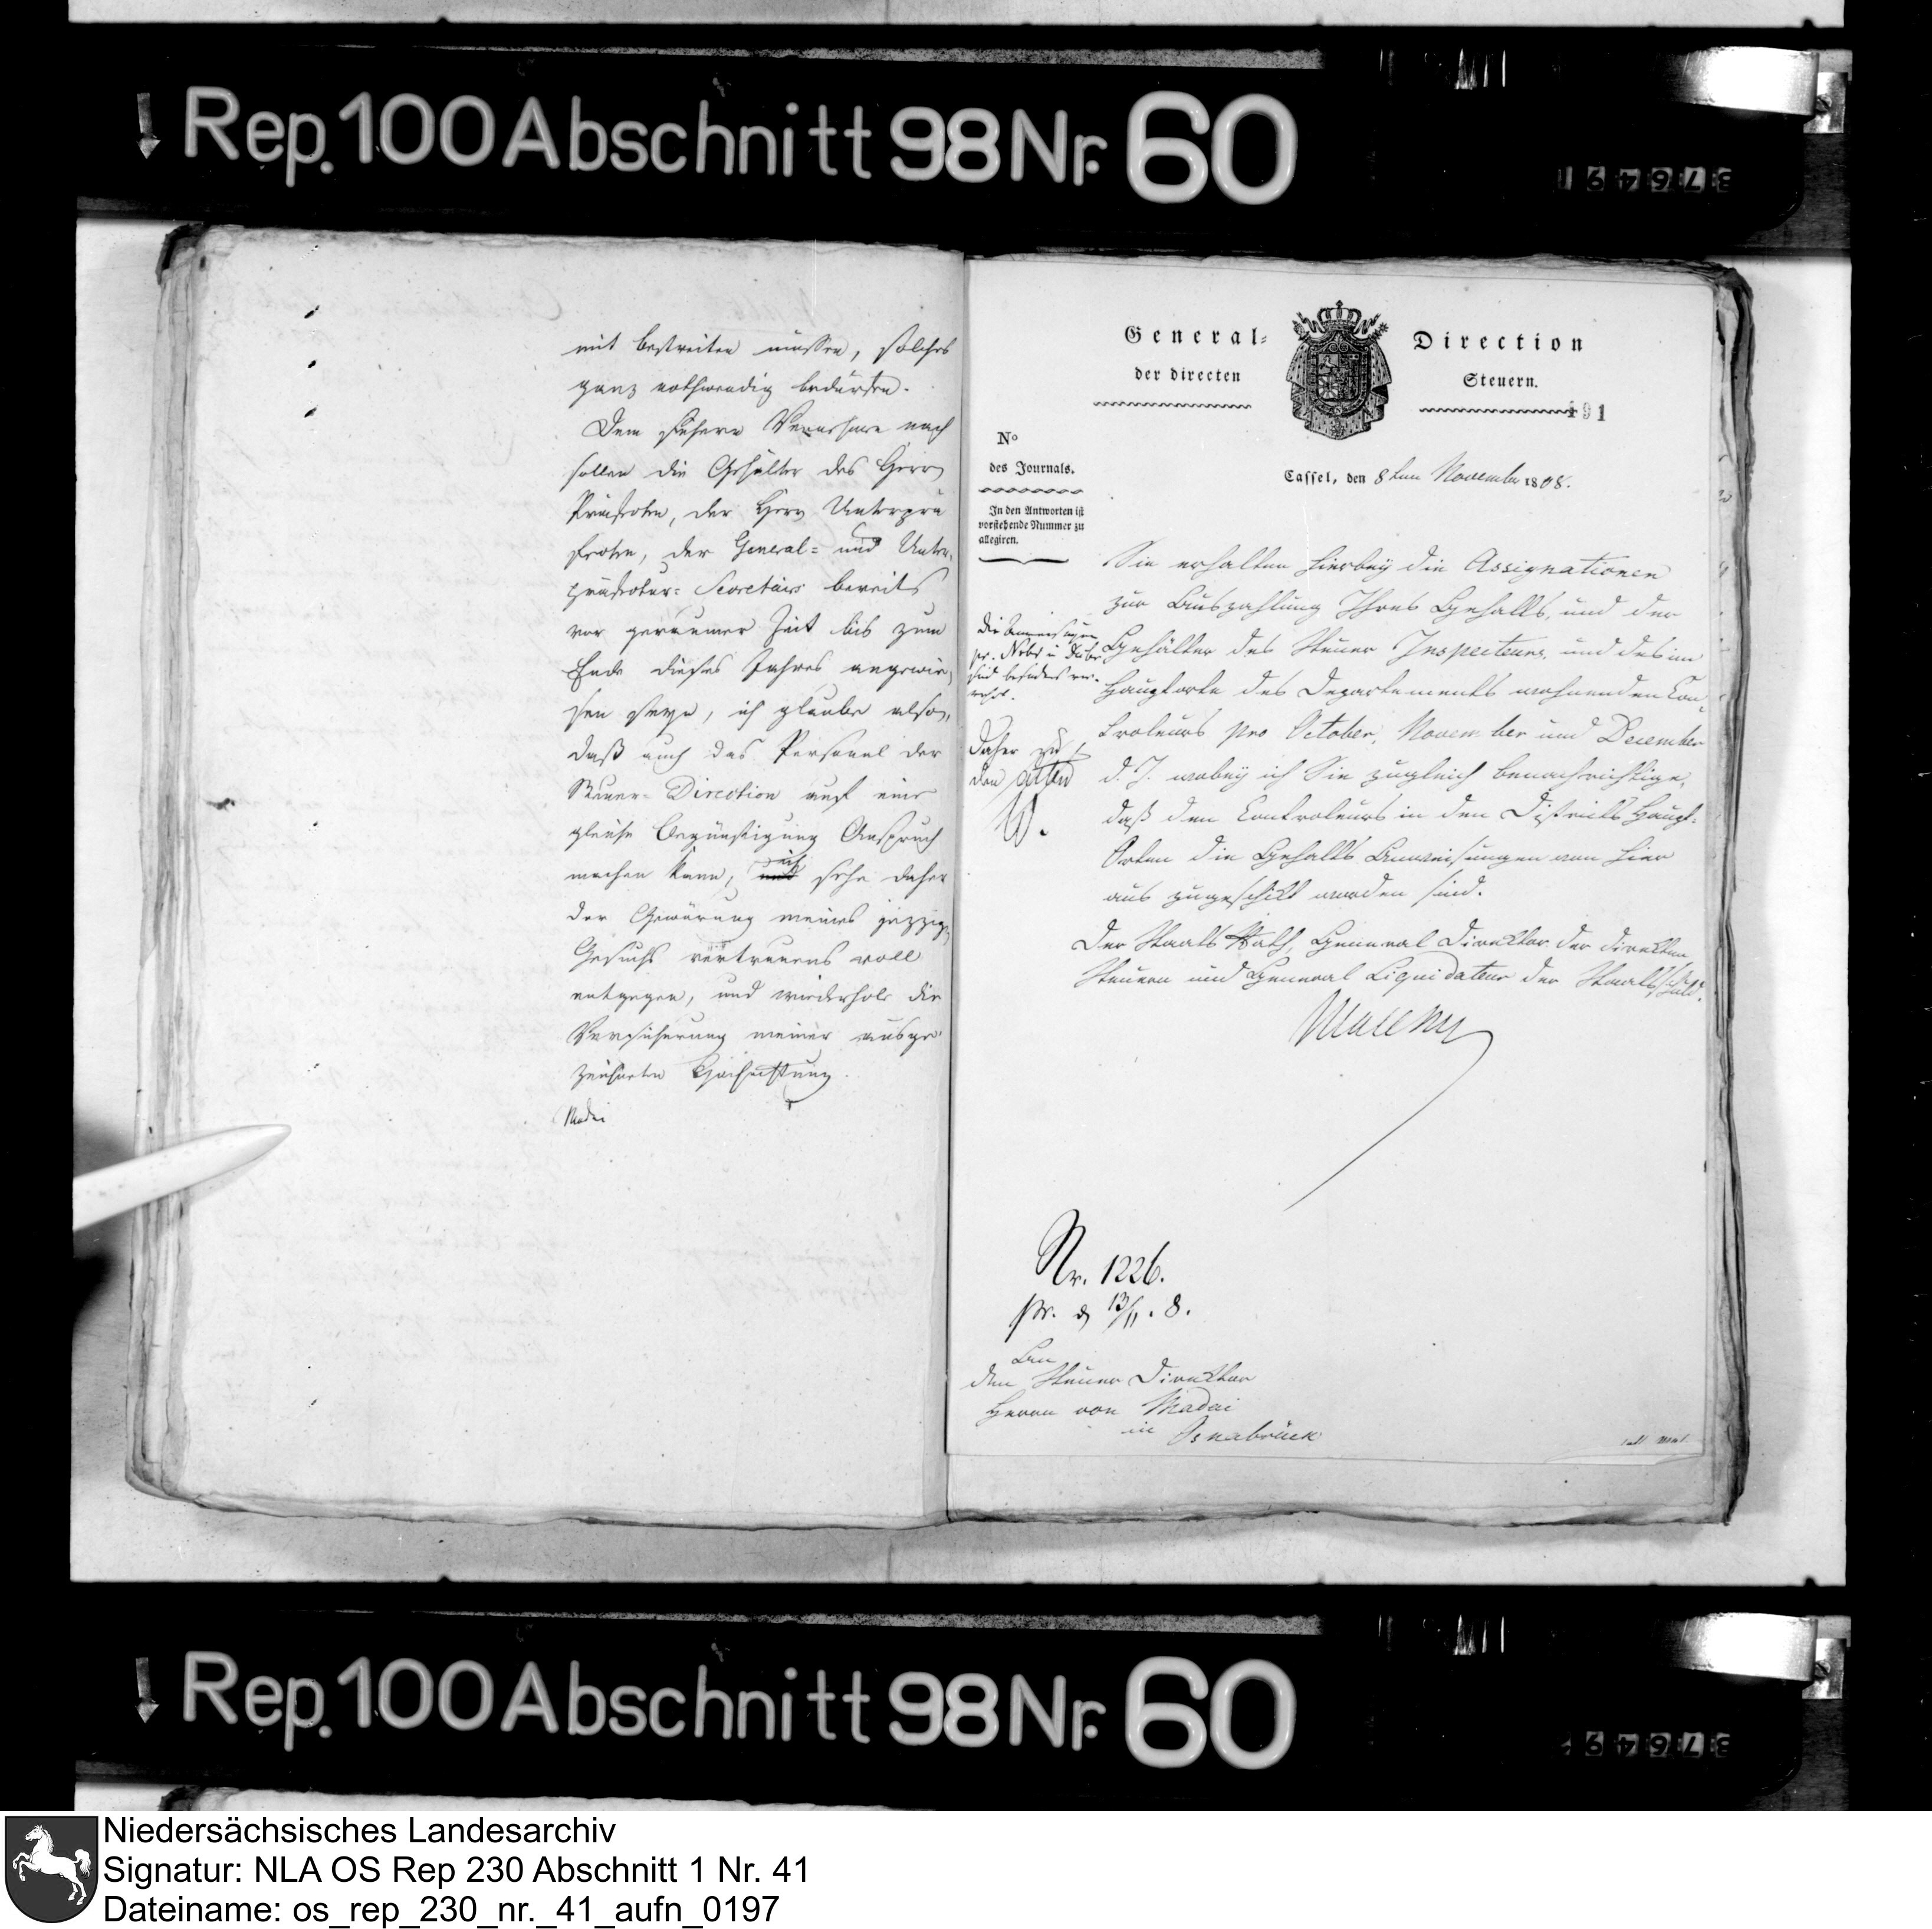 Rep. 100 Abschnitt 98 Nr. 60
mit bestreiten müssen, solches
ganz nothwendig bedürfen.
Dem sichern Vernehmen nach
sollen die Gehälter des Herrn
Präfecten, der Herrn Unterprä
fecten, der General= und Unter-
präfectur= Secretairs bereits
vor geraumer Zeit bis zum
Ende dieses Jahres angewie,
sen seyn, ich glaube also,
daß auch das Personal der
Steuer= Direction auf eine
gleiche Begünstigung Anspruch
machen kann, ich sehe daher
der Gewärung meines jezzigen
Gesuchs vertrauens voll
entgegen, und wiederhole die
Versicherung meiner ausge
zeichneten Hochachtung.
Madai
General= Direction
der directen Steuern.
191
No
des Journals.
In den Antworten ist
vorstehende Nummer zu
allegiren.
Cassel, den 8ten November 1808.
Sie erhalten hierbey die Assignationen
zur Auszahlung Ihres Gehalts, und der
Gehälter des Steuer Inspecteurs, und des im
Hauptorte des Departements wohnenden Con,
troleurs pro October, November und December
d. J. wobey ich Sie zugleich benachrichtige,
daß den Controleurs in den Districts Haupt-
Orten die Gehalts Anweisungen von hier
aus zugeschikt worden sind.
Die Anweisungen
pr. Nvbr u Decbr
sind besonders ver-
wahrt.
Daher zu
den Acten
Der Staats Rath, General Direktor der direkten
Steuern und General Liquidateur der Staats Schuld.
Malchus
Nr. 1226.
pr. d 13/11. 8.
An
den Steuer Direktor
Herrn von Madai
in Osnabrück
Rep. 100 Abschnitt 98 Nr. 60
Niedersächsisches Landesarchiv
Signatur: NLA OS Rep 230 Abschnitt 1 Nr. 41
Dateiname: os_rep_230_nr._41_aufn_0197